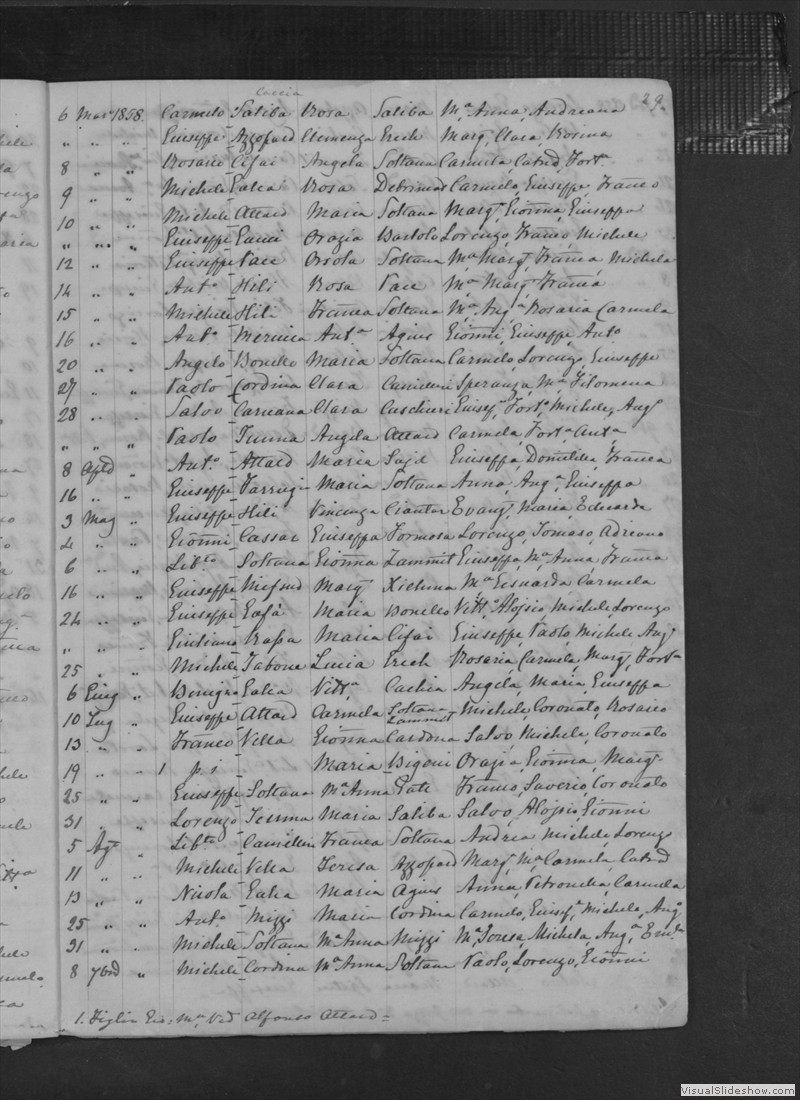 29.
Caccia
6 Mar. 1858. Carmelo Saliba Rosa Saliba Mª Anna, Andreana
" " " Giuseppe Azzopard Clemenza Grech Marg, Clara, Rosina
8 " " Rosario Cifai Angela Soltana Carmela, Catnd, Fortª
9 " " Michele Galea Rosa Debrincat Carmelo, Giuseppe Franco
10 " " Michele Attard Maria Soltana Margª, Gionna, Giuseppa
" " " Giuseppe Gauci Orazia Bartolo Lorenzo, Franco, Michele
12 " " Giuseppe Pace Orsola Soltana Mª Margª, Franca Michela
14 " " Antº Hili Rosa Pace Mª Margª Franca
15 " " Michele Hili Franca Soltana Mª Angª Rosaria Carmela
16 " " Antº Antª Agius Gionni, Giuseppe, Antº
20 " " Angelo Bonello Maria Soltana Carmelo, Lorenzo, Giuseppe
27 " " Paolo Cordina Clara Camilleri Speranza, Mª Filomena
28 " " Salvo Caruana Clara Cuschieri Giusefª, Fortª, Michele, Angº
" " " Paolo Angela Attard Carmela, Fortª Antª
8 " Antº Attard Maria Sajd Giuseppa, Domitilla, Franca
16 " " Giuseppe Farrugia Maria Soltana Anna, Angª, Giuseppa
3 Mag " Giuseppe Hili Vincenza Ciantar Evangª, Maria, Eduarda
4 " " Gionni Cassar Giuseppa Formosa Lorenzo, Tomaso, Adriano
6 " " Libtº Soltana Gionna Zammit Giuseppa, Mª Anna, Franca
16 " " Giuseppe Mifsud Margª Xicluna Mª Carmela
24 " " Giuseppe Maria Bonello Vittº, Alojsio, Michele, Lorenzo
" " " Giuliano Maria Cifai Giuseppe, Paolo, Michele Angº
25 " " Michele Tabone Lucia Grech Rosaria, Carmela, Margª, Fortª
6 Giug " Benigno Galea Vittª Cachia Angela, Maria, Giuseppa
10 Lug " Giuseppe Attard Carmela Soltana Zammit Michele, Coronato, Rosario
13 " " Franco Vella Gionna Cardona Salvo, Michele, Coronato
19 " " 1 p. i Maria Bigeni Orazia, Gionna, Margª
25 " " Giuseppe Soltana Mª Anna Franco, Saverio, Coronato
31 " " Lorenzo Maria Saliba Salvo, Alojsio, Gionni
5 Agº " Libtº Camilleri Franca Soltana Andrea, Michele, Lorenzo
11 " " Michele Vella Teresa Azzopard Margª, Mª Carmela, Catnd
13 " " Nicola Galea Maria Agius Anna, Petronilla, Carmela
25 " " Antº Mizzi Maria Cordina Carmelo, Giusefª, Michele, Angº
31 " " Michele Soltana Mª Anna Mizzi Mª Teresa, Michela, Angª
8 7bre " Michele Cordina Mª Anna Soltana Paolo, Lorenzo, Gionni
1. Figlio Mª Ved Alfonso Attard =
VisualSlideshow.com